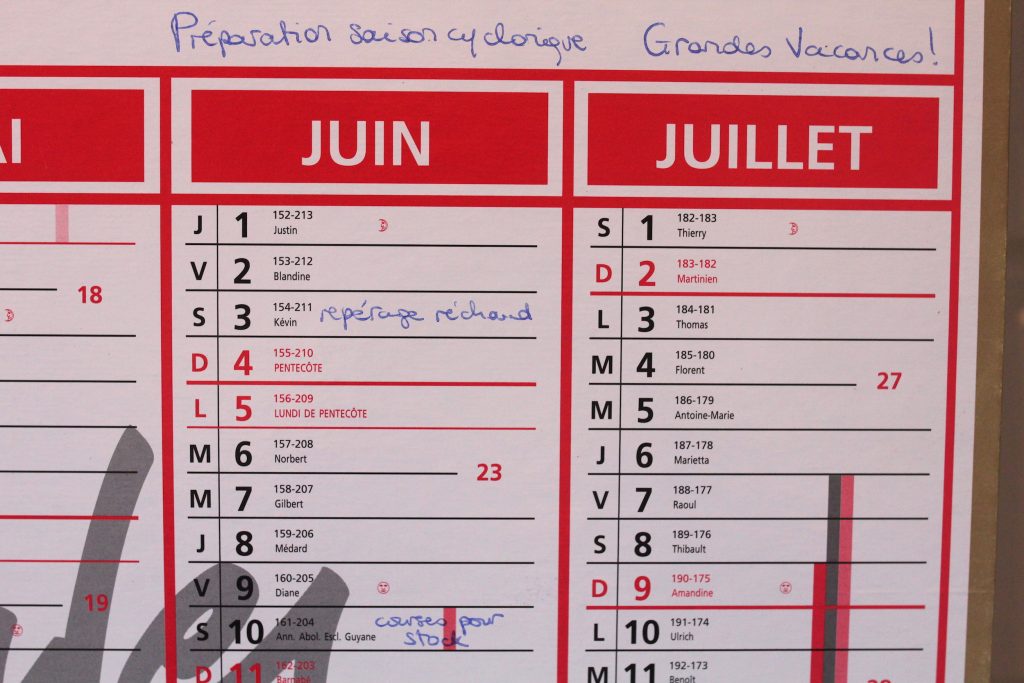 Préparation saison cyclonique
Grandes Vacances!
AI
18
19
JUIN
J 1 152-213 Justin
V 2 153-212 Blandine
S 3 154-211 Kévin repérage réchaud
D 4 155-210 PENTECÔTE
L 5 156-209 LUNDI DE PENTECÔTE
M 6 157-208 Norbert
23
M 7 158-207 Gilbert
J 8 159-206 Médard
V 9 160-205 Diane
S 10 161-204 Ann. Abol. Escl. Guyane courses pour
stock
D 11 162-203 Barnabé
JUILLET
S 1 182-183 Thierry
D 2 183-182 Martinien
L 3 184-181 Thomas
M 4 185-180 Florent
27
M 5 186-179 Antoine-Marie
J 6 187-178 Marietta
V 7 188-177 Raoul
S 8 189-176 Thibault
D 9 190-175 Amandine
L 10 191-174 Ulrich
M 11 192-173 Benoît
28